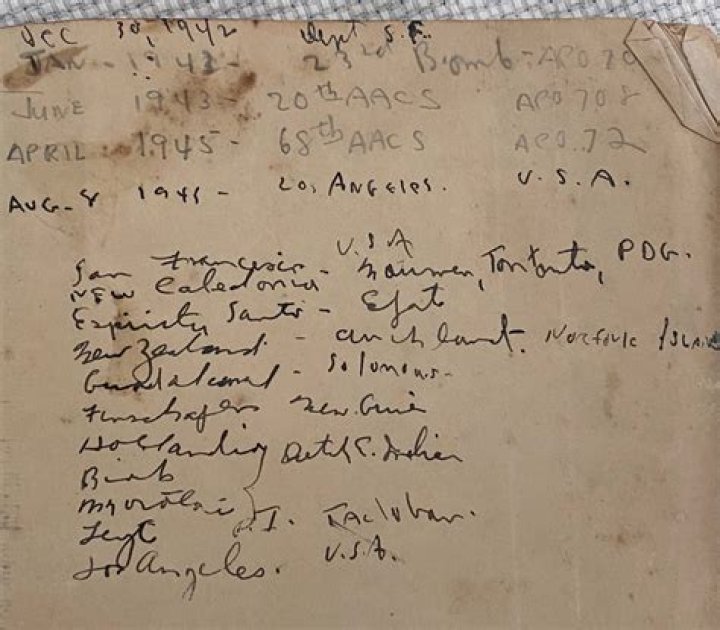 Dec 30, 1942 Dept S.F.
JAN - 1943 - 23rd Bomb - APO 70
JUNE 1943 - 20th AACS APO 708
APRIL 1945 - 68th AACS APO. 72
AUG - 8 1945 - LOS ANGELES. U.S.A.
San Francisco - U.S.A
NEW Caledonia Noumea, Tontouta, PDG.
Espiritu Santo - Efate
New Zealand - Auckland. NORFOLK ISLAND
Guadalcanal - Solomons -
Finschafen New. Guin
Hollandia Dutch E. Indies
Biak
Morotai
Leyt P.I. Tacloban.
Los Angeles. U.S.A.